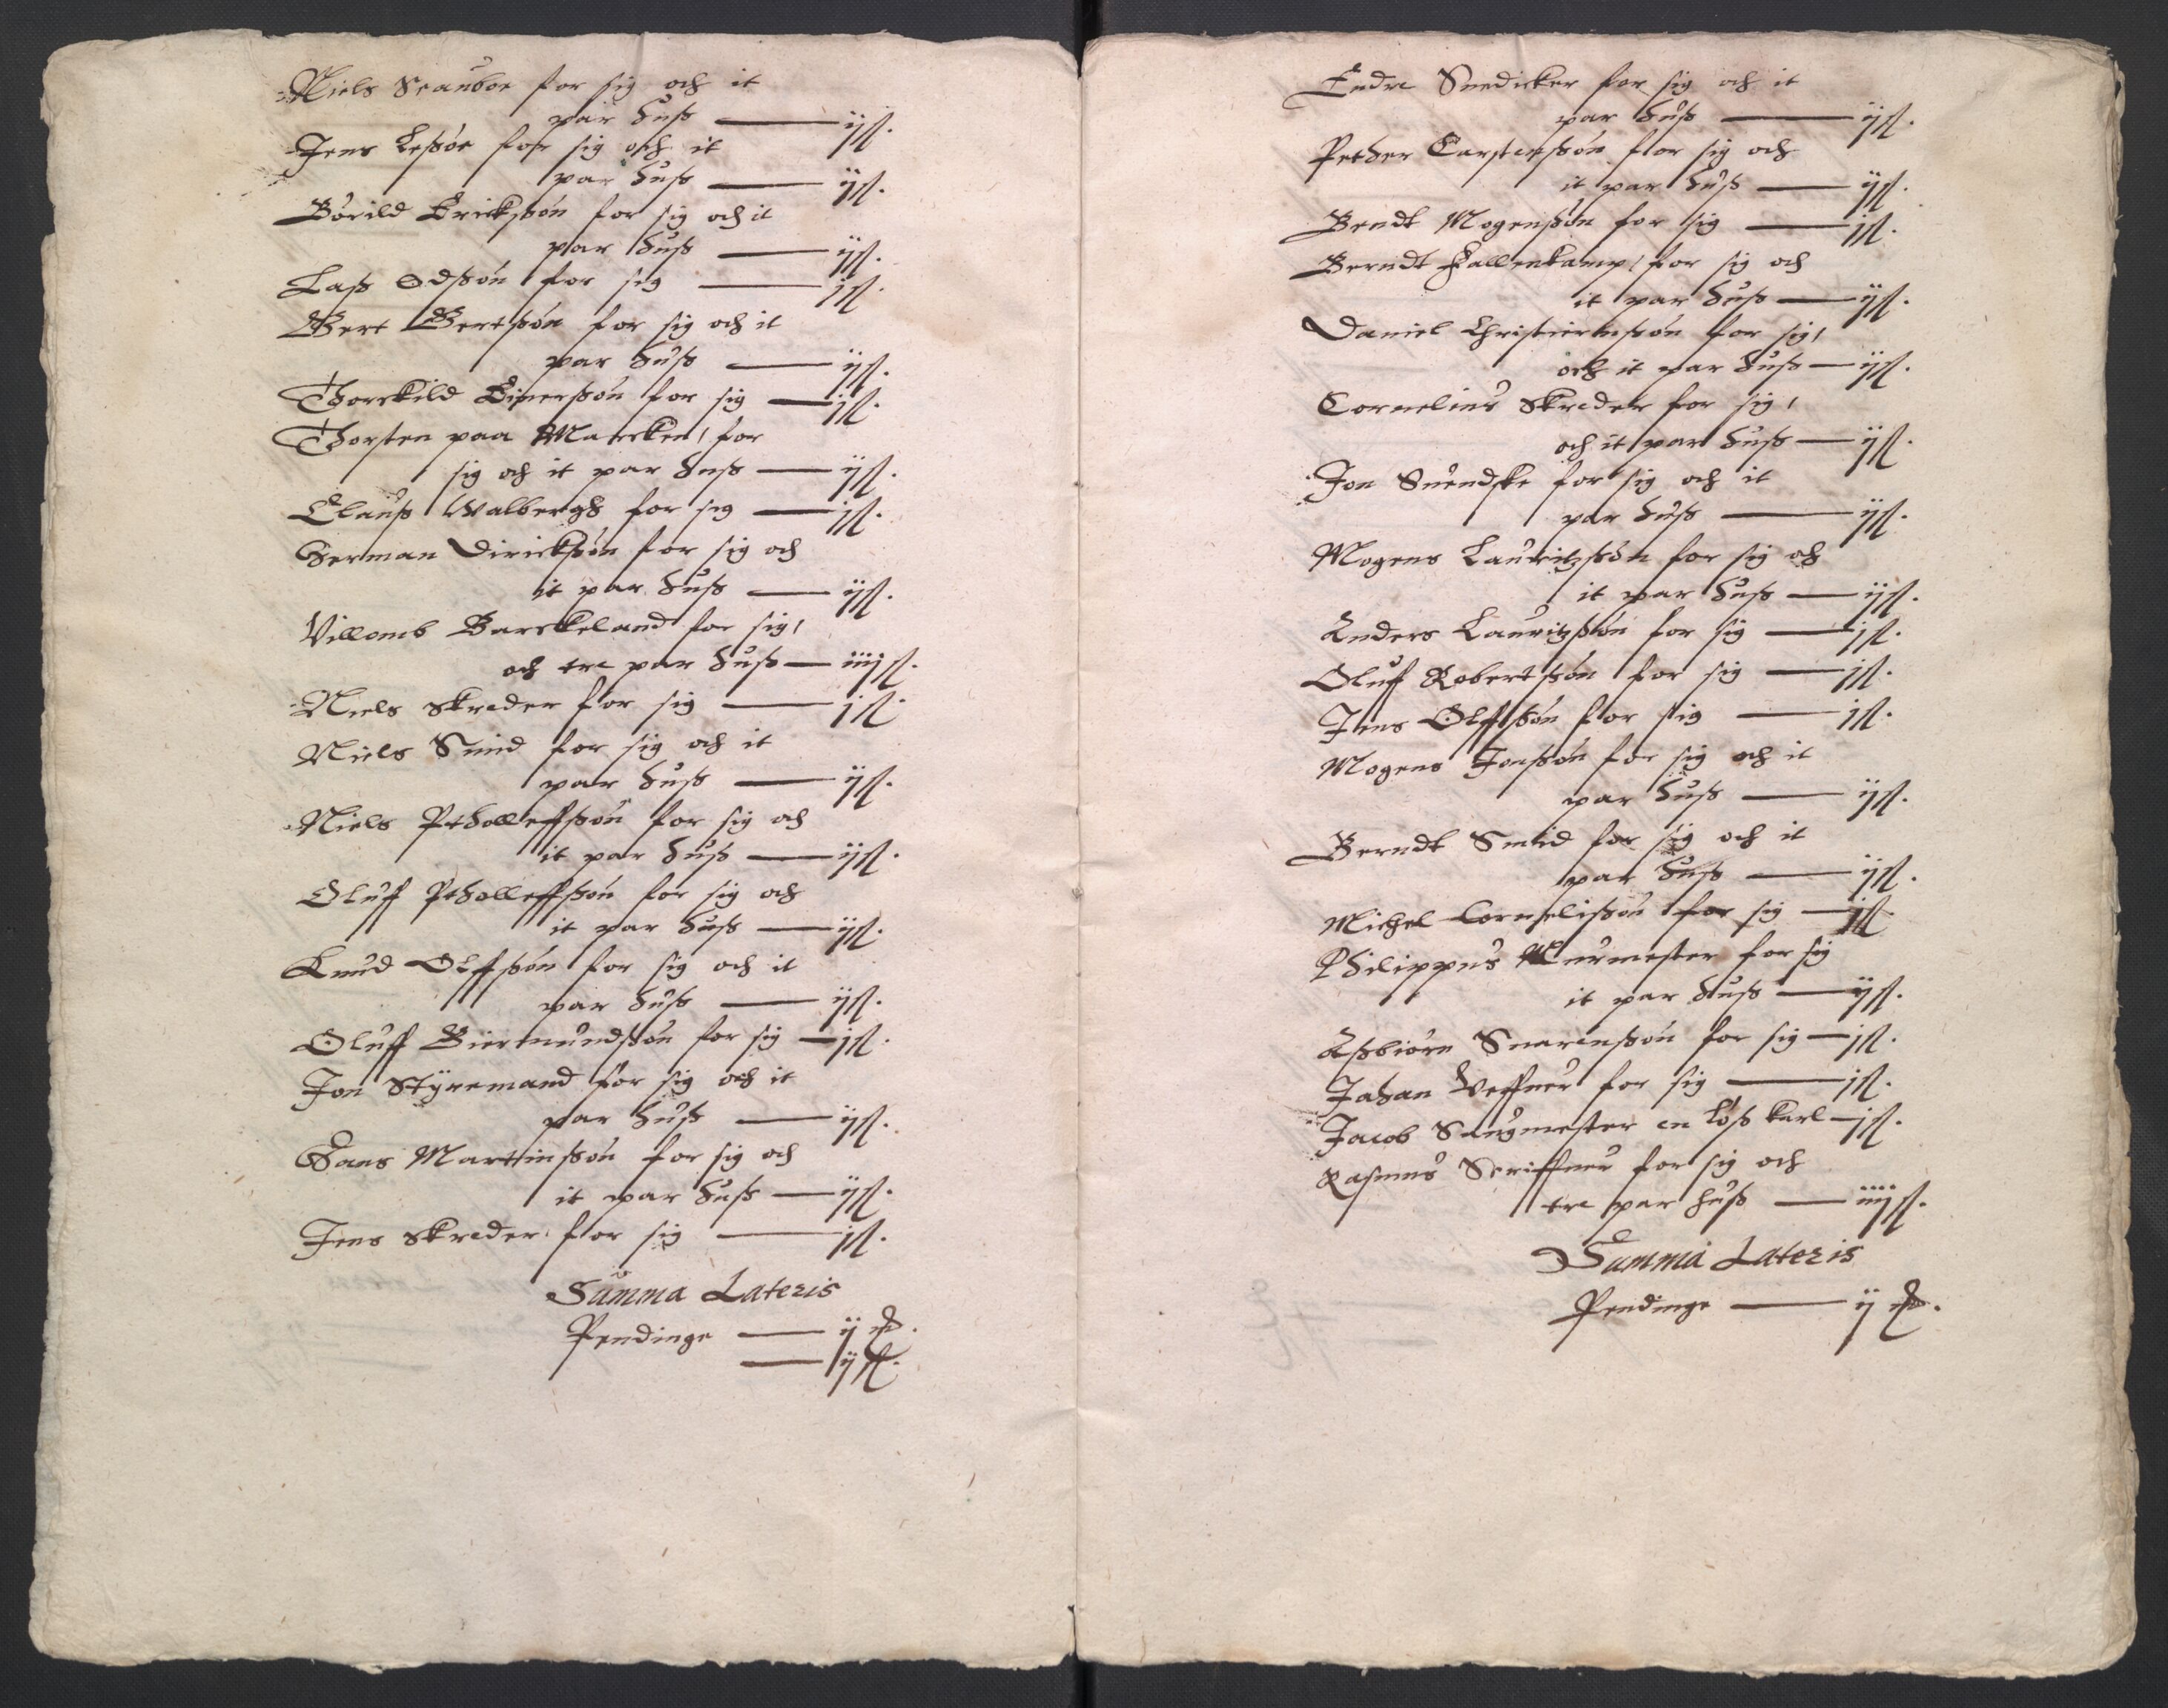 Niels Scaubor for sig och it
par huß — ij ß.
Jens Leßøe for sig och it
par huß — ij ß.
Børild Erickßøn for sig och it
par huß — ij ß.
Laß Odßøn for sig — j ß.
Gert Gertßøn for sig och it
par huß — ij ß.
Thorkild Einerßøn for sig — j ß.
Thorsten paa Marcken, for
sig och it par huß — ij ß.
Clauß Walbergh for sig — j ß.
Herman Dirickßøn for sig och
it par huß — ij ß.
Villomb Barckeland for sig,
och tre par huß — iiij ß.
Niels Skreder for sig — j ß.
Niels Smid for sig och it
par huß — ij ß.
Niels Petholleffßøn for sig och
it par huß — ij ß.
Oluff Petholleffßøn for sig och
it par huß — ij ß.
Knud Olffßøn for sig och it
par huß — ij ß.
Oluff Biermundßøn for sig — j ß.
Jon Styremand for sig och it
par huß — ij ß.
Hans Martinßøn for sig och
it par huß — ij ß.
Jens Skreder for sig — j ß.
Summa Lateris
Pendinge — ij
— ij ß.
Endre Snedicker for sig och it
par huß — ij ß.
Pether Carstenßøn for sig och
it par huß — ij ß.
Bendt Mogenßøn for sig — j ß.
Berndt Hallenkamp, for sig och
it par huß — ij ß.
Daniel Christiernßøn for sig,
och it par huß — ij ß.
Cornelius Skreder for sig,
och it par huß — ij ß.
Jon Suendske for sig och it
par huß — ij ß.
Mogens Lauritzßøn for sig och
it par huß — ij ß.
Anders Lauritzßøn for sig — j ß.
Oluff Robertßøn for sig — j ß.
Jens Olffßøn for sig — j ß.
Mogens Jonßøn for sig och it
par huß — ij ß.
Berndt Smid for sig och it
par huß — ij ß.
Michel Cornelißøn for sig — j ß.
Philippus Murmester for sig
it par huß — ij ß.
Aßbiørn Suarenßøn for sig — j ß.
Johan Veffuer for sig — j ß.
Jacob Sangmester en løß karl — j ß.
Rasmus Scriffuer for sig och
tre par huß — iiij ß.
Summa Lateris
Pendinge — ij